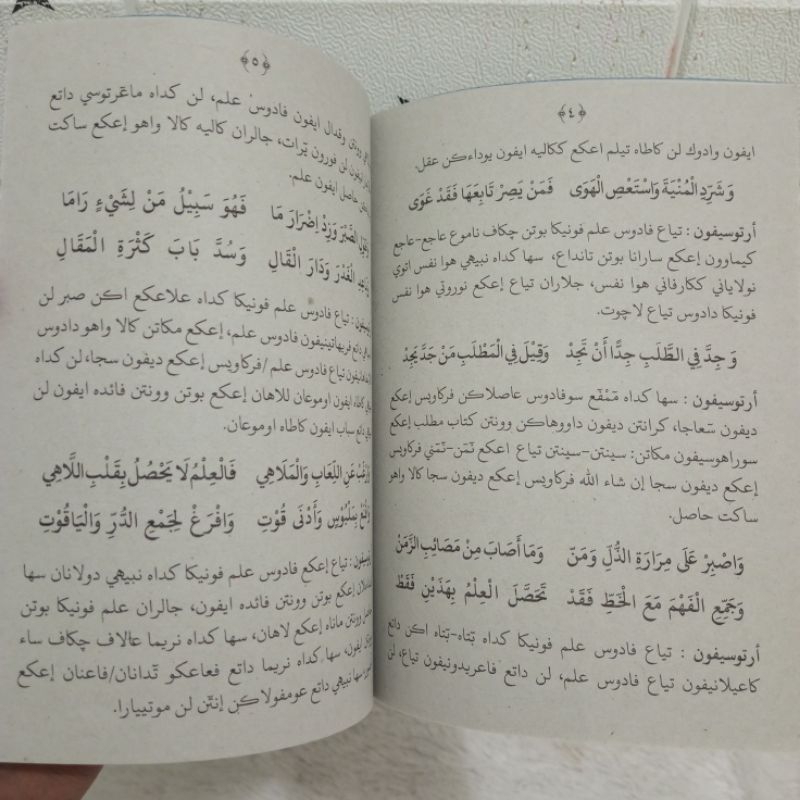 ﴿٤﴾
ايفون وادوك لن كاطاه تيلم اعكع ككاليه ايفون يوداءكن عقل.
وَشَرِّدِ الْمُنْيَةَ وَاسْتَعْصِ الْهَوَى فَمَنْ يَصِرْ تَابِعَهَا فَقَدْ غَوَى
أرتوسيفون : تياع فادوس علم فونيكا بوتن چكاف ناموع عاجع-عاجع
كيماوون إعكع سارانا بوتن تانداع، سها كداه نبيهي هوا نفس اتوي
نولاياني ككارفاني هوا نفس، جلاران تياع إعكع نوروتي هوا نفس
فونيكا دادوس تياع لاچوت.
وَجِدَّ فِي الطَّلَبِ جِدًّا أَنْ تَجِدْ وَقِيْلَ فِي الْمَطْلَبِ مَنْ جَدَّ يَجِدْ
أرتوسيفون : سها كداه مّمْفّع سوفادوس عاصلاكن فركاويس إعكع
ديفون سّعاجا، كرانتن ديفون داووهاكن وونتن كتاب مطلب إعكع
سوراهوسيفون مكاتن: سينتن-سينتن تياع اعكع نّمَن-نّمَني فركاويس
إعكع ديفون سجا إن شاء الله فركاويس إعكع ديفون سجا كالا واهو
ساكت حاصل.
وَاصْبِرْ عَلَى مِرَارَةِ الذُّلِّ وَمَنْ وَمَا أَصَابَ مِنْ مَصَائِبِ الزَّمَنْ
وَجَمِّعِ الْفَهْمَ مَعَ الْخَطِّ فَقَدْ تَحَصَّلَ الْعِلْمُ بِهَذَيْنِ فَقَطْ
أرتوسيفون : تياع فادوس علم فونيكا كداه تّتاه-تّتاه اكن داتع
كاعيلانيفون تياع فادوس علم، لن داتع فاعريدونيفون تياع، لن
﴿٥﴾
وقدال ايفون فادوس علم، لن كداه ماعرتوسي داتع
ايفون لن فورون يّرات، جالران كاليه كالا واهو إعكع ساكت
حاصل ايفون علم.
الصَّبْرَ وَزِدْ إِضْرَارَ مَا فَهُوَ سَبِيْلُ مَنْ لِشَيْءٍ رَامَا
الْغَدْرَ وَدَارَ الْقَالِ وَسُدَّ بَابَ كَثْرَةِ الْمَقَالِ
تياع فادوس علم فونيكا كداه علاعكع اكن صبر لن
فريهاتينيفون فادوس علم، إعكع مكاتن كالا واهو دادوس
تياع فادوس علم/فركاويس إعكع ديفون سجا، لن كداه
كاطاه ايفون اوموعان للاهان إعكع بوتن وونتن فائده ايفون لن
داتع سباب ايفون كاطاه اوموعان.
عَنِ اللِّعَابِ وَالْمَلَاهِي فَالْعِلْمُ لَا يَحْصُلُ بِقَلْبِ اللَّاهِي
بِمَلْبُوْسٍ وَأَدْنَى قُوْتِ وَافْرَغْ لِجَمْعِ الدُّرِّ وَالْيَاقُوْتِ
تياع إعكع فادوس علم فونيكا كداه نبيهي دولانان سها
إعكع بوتن وونتن فائده ايفون، جالران علم فونيكا بوتن
وونتن ماناه إعكع لاهان، سها كداه نريما عالاف چكاف ساء
ايفون، سها كداه نريما داتع فعاعكو تّدانان/فاعنان إعكع
سها نبيهي داتع عومفولاكن إنتّن لن موتييارا.